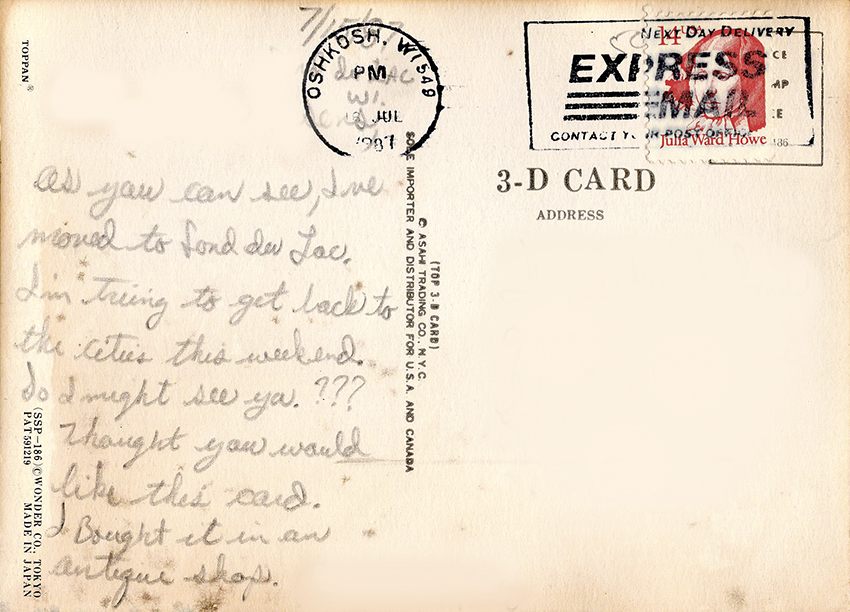 7/15/87
Fond du Lac
WI.
OSHKOSH, WI 549
PM
JUL
1987
NEXT DAY DELIVERY
EXPRESS
MAIL
CONTACT YOUR POST OFFICE
14
Julia Ward Howe
TOPPAN ®
As you can see, I've
moved to Fond du Lac.
I'm trying to get back to
the cities this weekend.
So I might see ya. ???
Thought you would
like this card.
I Bought it in an
antique shop.
(SSP-186) © WONDER CO., TOKYO
PAT 591219 MADE IN JAPAN
(TOP 3-D CARD)
© ASAHI TRADING CO., N.Y.C.
SOLE IMPORTER AND DISTRIBUTOR FOR U.S.A. AND CANADA
3-D CARD
ADDRESS